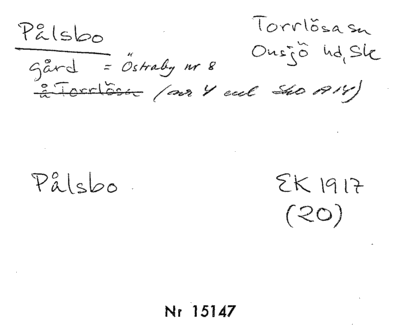 Pålsbo
Torrlösa sn
Onsjö hd, Sk
gård = Östraby nr 8
å Torrlösa (nr 4 enl SkO A14)
Pålsbo
EK 1917
(20)
Nr 15147